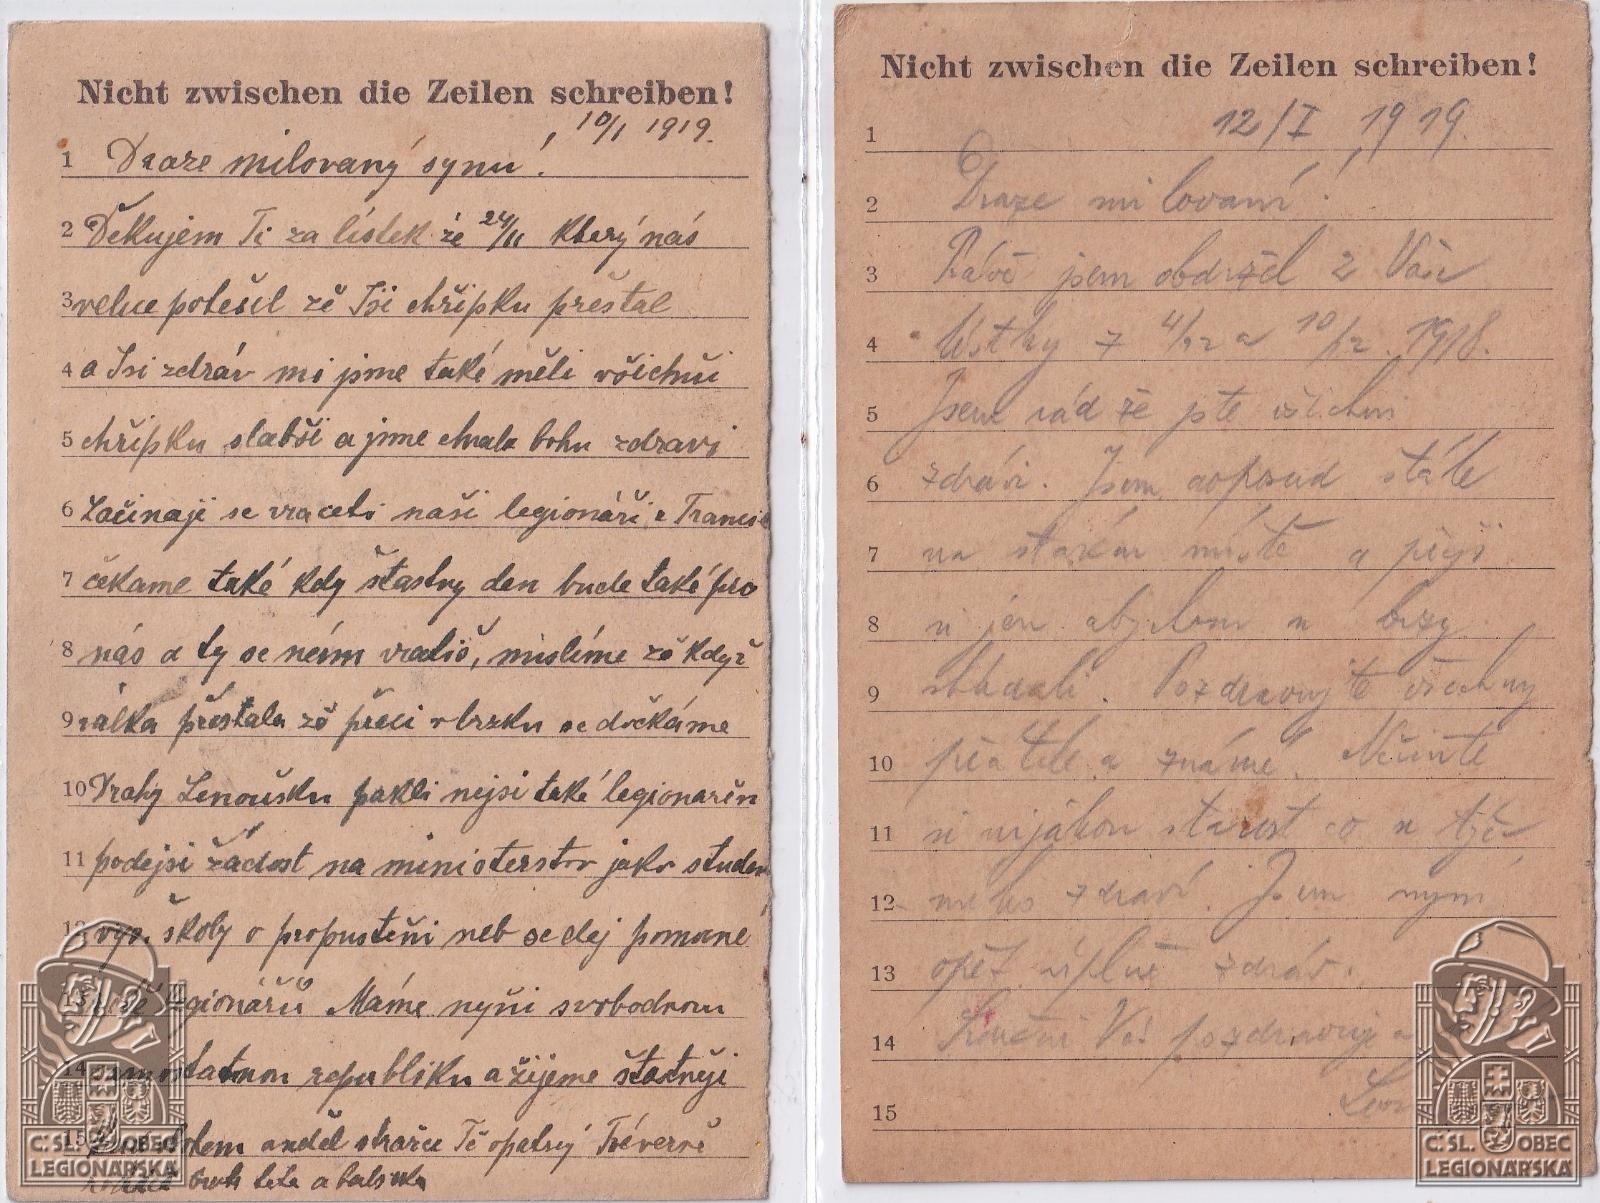 Nicht zwischen die Zeilen schreiben!
10/1 1919.
1 Draze milovaný synu!
2 Děkujem Ti za lístek ze 24/11 který nás
3 velice potešil zě Jsi chřipku přestal
4 a Jsi zdráv mi jsme také měli všichni
5 chřipku slabši a jsme chvala bohu zdravi
6 Začinaji se vraceti naši legionáři z Francie
7 čekame také kdy štastny den bude také pro
8 nás a ty se nám vratiš, mislíme zě když
9 válka přestala zě přeci v brzku se dočkáme
10 Drahy Lenoušku pakli nejsi také legionařen
11 podej si žádost na ministerstvo jako studen
12 vys. školy o propuštěni neb se dej pomoné
13 legionářů Máme nyni svobodnou
14 samostatnou republiku a žijeme štastněji
15 anděl stražce Tě opatruj Tvé věrně
teta a babička
Nicht zwischen die Zeilen schreiben!
1 12/I 1919.
2 Draze milovaní!
3 Právě jsem obdržel 2 Vaše
4 lístky z 4/12 a 10/12. 1918.
5 Jsem rád že jste všichni
6 zdrávi. Jsem doposud stále
7 na starém místě a přeji
8 si jen abychom se brzy
9 shledali. Pozdravujte všechny
10 přátele a známé. Nečiňte
11 si nijakou starost co se týče
12 mého zdraví. Jsem nyní
13 opět úplně zdráv.
14 Srdečně Vás pozdravuje a
15
Č. SL. OBEC
LEGIONÁŘSKÁ
Č. SL. OBEC
LEGIONÁŘSKÁ